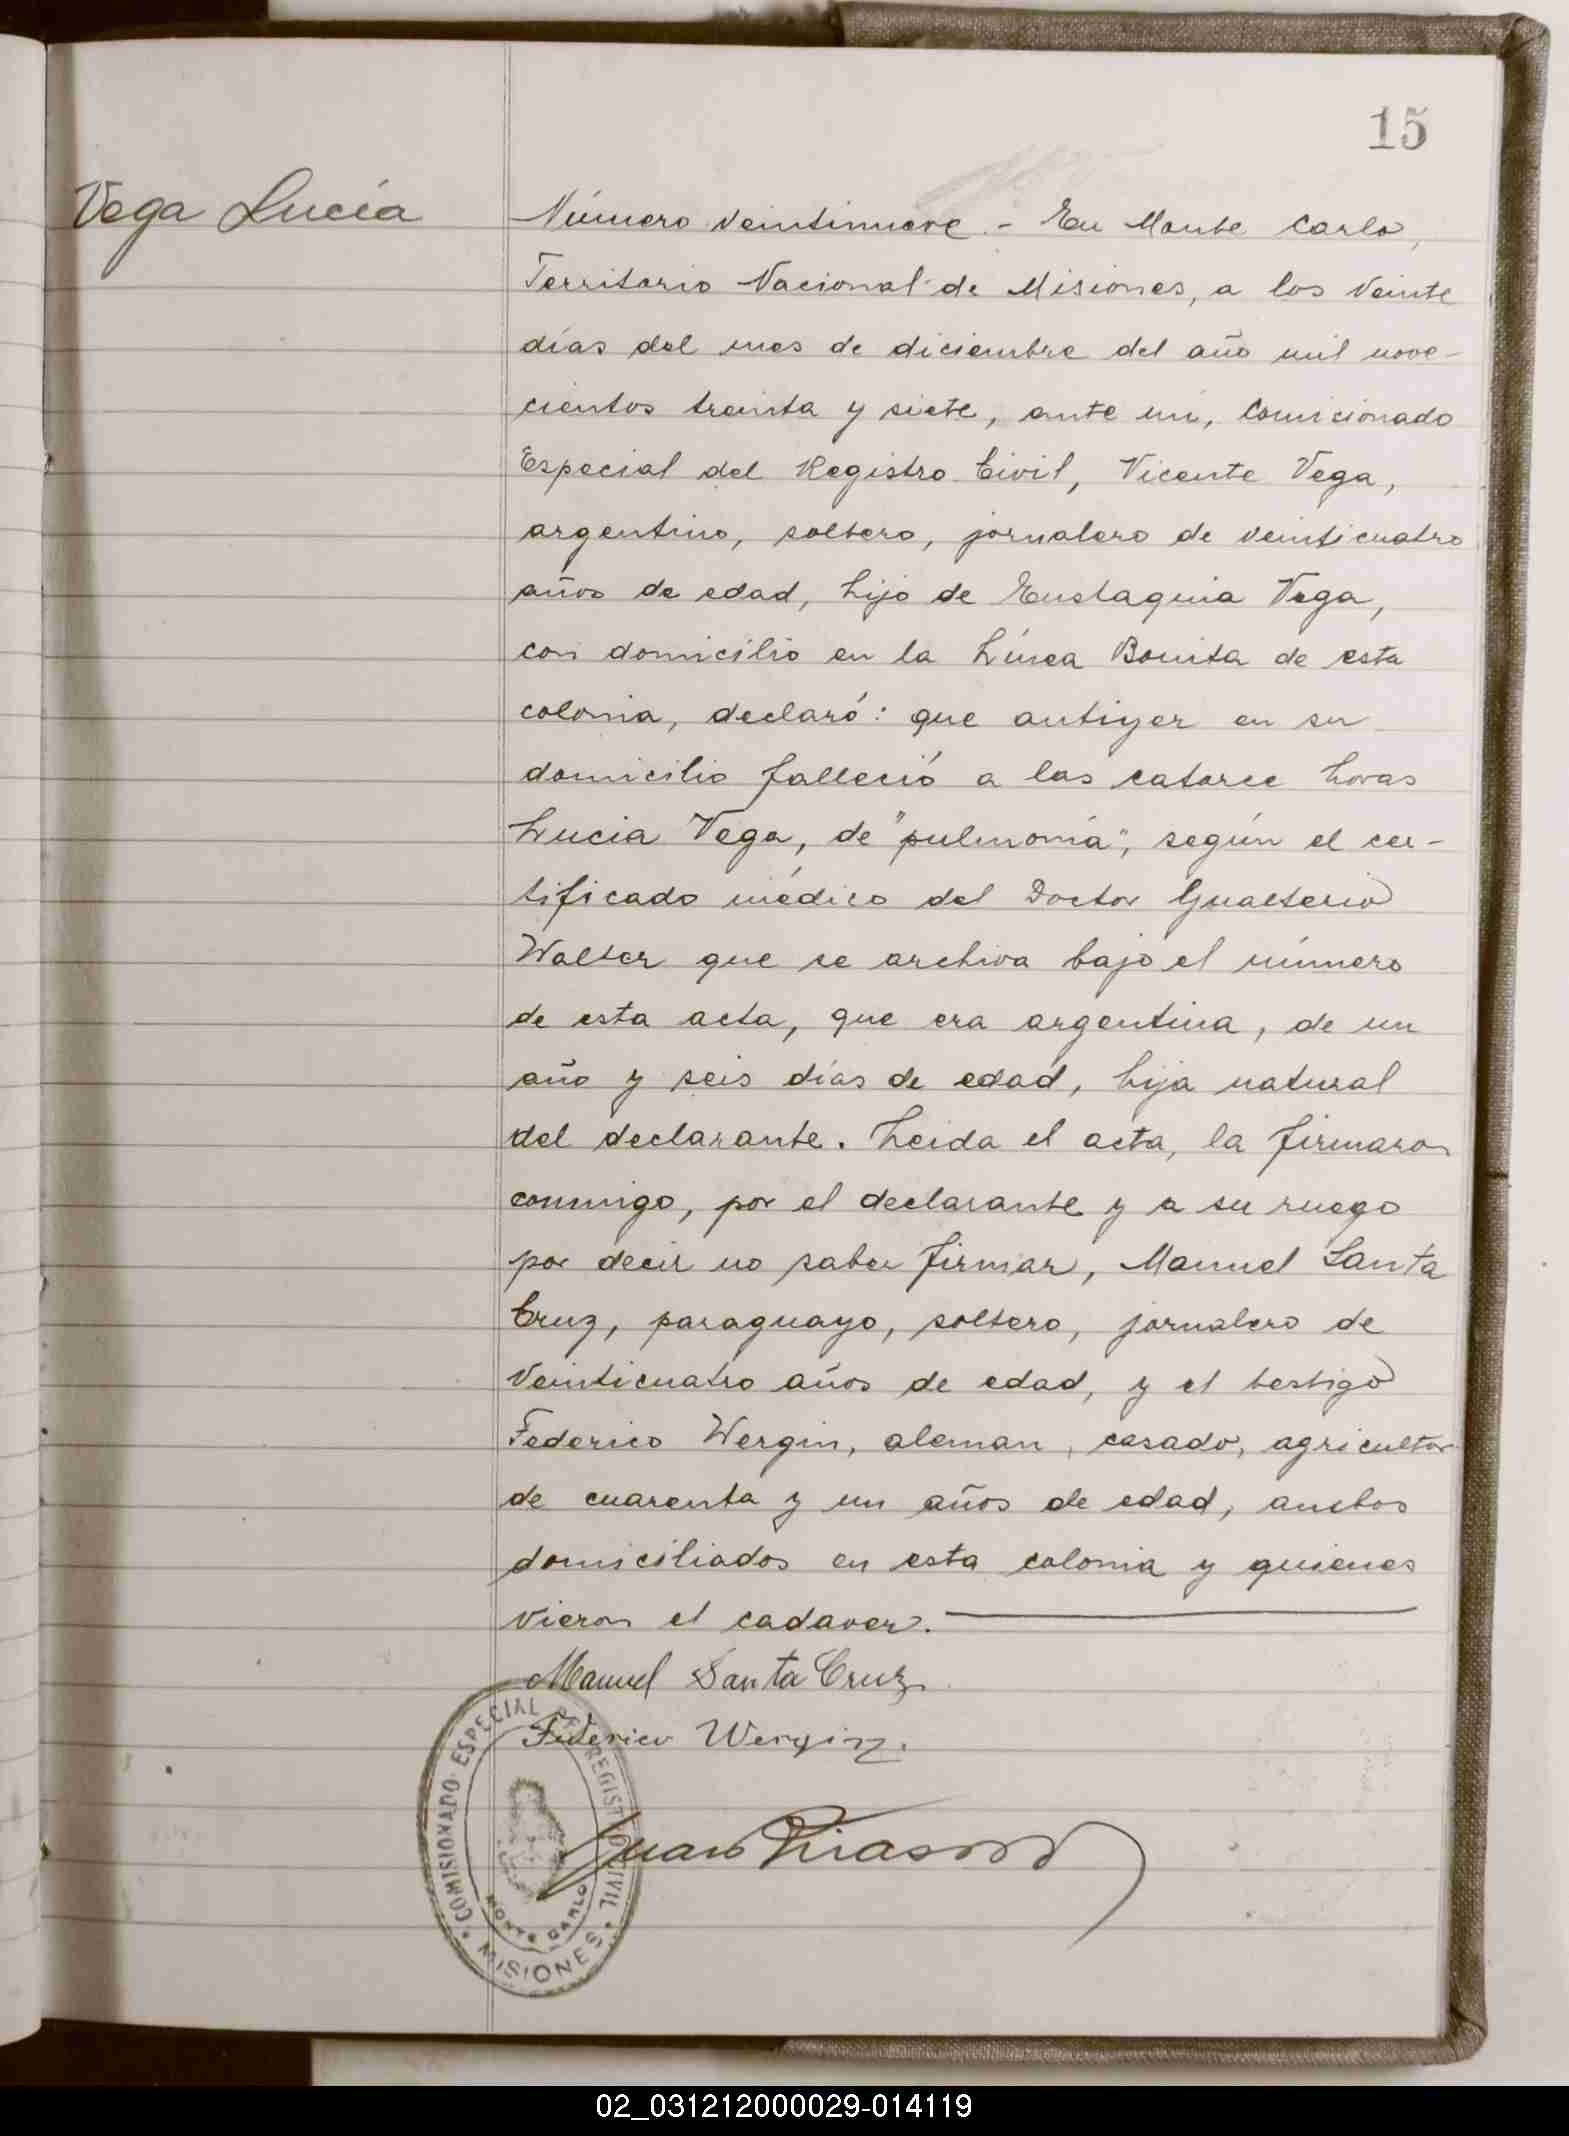 15
Vega Lucía
Número veintinueve.- En Monte Carlo,
Territorio Nacional de Misiones, a los veinte
días del mes de diciembre del año mil nove-
cientos treinta y siete, ante mí, Comicionado
Especial del Registro Civil, Vicente Vega,
argentino, soltero, jornalero de veinticuatro
años de edad, hijo de Eustaquia Vega,
con domicilio en la Línea Bonita de esta
colonia, declaró: que antiyer en su
domicilio falleció a las catorce horas
Lucia Vega, de "pulmonía", según el cer-
tificado médico del Doctor Gualterio
Walter que se archiva bajo el número
de esta acta, que era argentina, de un
año y seis días de edad, hija natural
del declarante. Leida el acta, la firmaron
conmigo, por el declarante y a su ruego
por decir no saber firmar, Manuel Santa
Cruz, paraguayo, soltero, jornalero de
veinticuatro años de edad, y el testigo
Federico Wergin, aleman, casado, agricultor
de cuarenta y un años de edad, ambos
domiciliados en esta colonia y quienes
vieron el cadaver.
Manuel Santa Cruz
Federico Wergin.
Juan
COMISIONADO ESPECIAL DEL REGISTRO CIVIL
MONTE CARLO
MISIONES
02_031212000029-014119